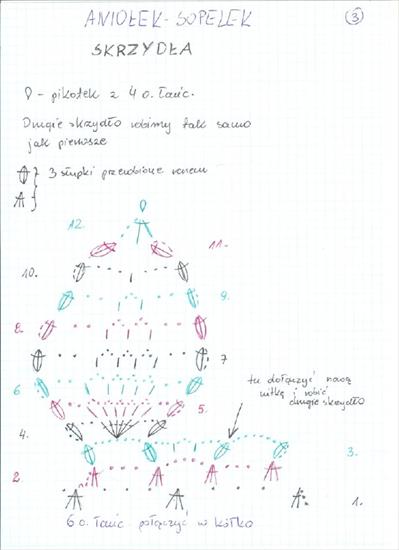 ANIOŁEK-SOPELEK
3
SKRZYDŁA
- pikotek z 4 o. łańc.
Drugie skrzydło robimy tak samo
jak pierwsze
3 słupki przerobione razem
12.
11.
10.
9.
8.
7
6
5.
tu dołączyć naszą
nitkę i robić
drugie skrzydło
4.
3.
2
1.
6 o. łańc. połączyć w kółko